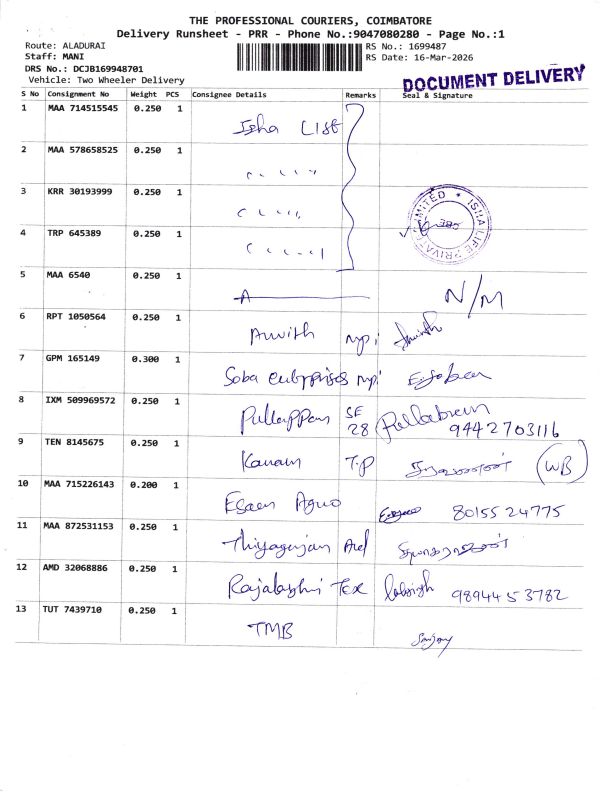 THE PROFESSIONAL COURIERS, COIMBATORE
Delivery Runsheet - PRR - Phone No.:9047080280 - Page No.:1
Route: ALADURAI RS No.: 1699487
Staff: MANI RS Date: 16-Mar-2026
DRS No.: DCJB169948701
Vehicle: Two Wheeler Delivery
DOCUMENT DELIVERY
S No Consignment No Weight PCS Consignee Details Remarks Seal & Signature
1 MAA 714515545 0.250 1 Isha
2 MAA 578658525 0.250 1
3 KRR 30193999 0.250 1
ISHA LIFE PRIVATE LIMITED
4 TRP 645389 0.250 1
5 MAA 6540 0.250 1 A N/M
6 RPT 1050564 0.250 1
7 GPM 165149 0.300 1 Soba
8 IXM 509969572 0.250 1 Pullappan SE 28 9442703116
9 TEN 8145675 0.250 1 T.P WB
10 MAA 715226143 0.200 1 8015524775
11 MAA 872531153 0.250 1 Thiyagarajan
12 AMD 32068886 0.250 1 Tex 9894453782
13 TUT 7439710 0.250 1 TMB